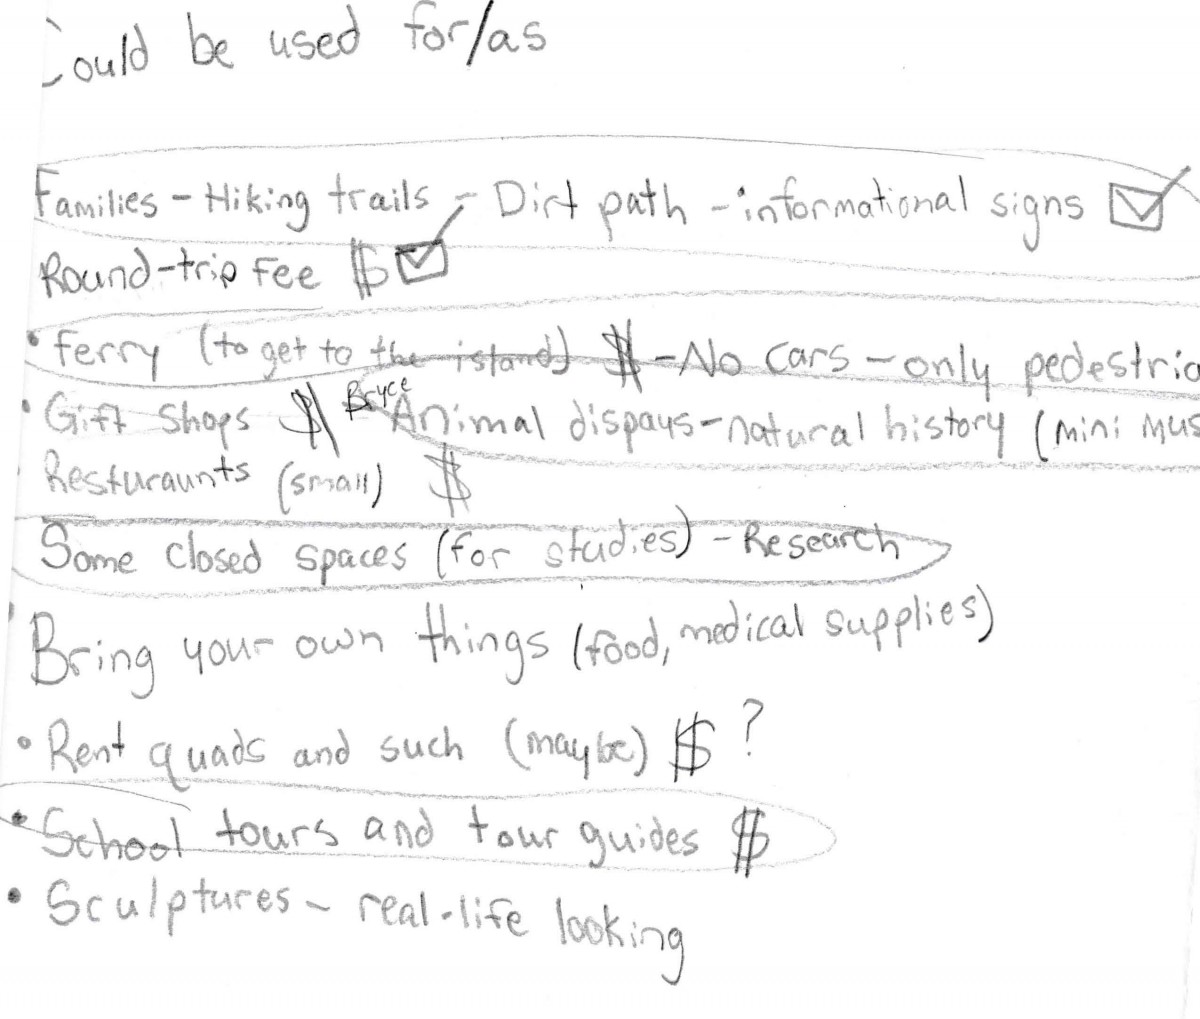 Could be used for/as
Families - Hiking trails - Dirt path - informational signs ☑
Round-trip Fee $ ☑
• ferry (to get to the island) $ - No cars - only pedestria
• Gift Shops $ Bryce Animal dispays - natural history (mini mus
• Resturaunts (small) $
Some closed spaces (for studies) - Research
• Bring your own things (food, medical supplies)
• Rent quads and such (maybe) $ ?
• School tours and tour guides $
• Sculptures - real-life looking